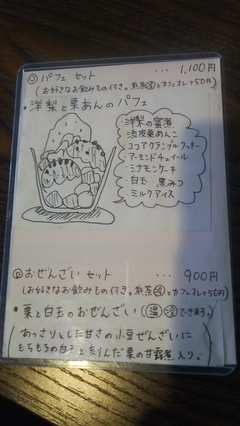 ◎ パフェ セット ・・・ 1,100円
(お好きなお飲みもの付き。煎茶㊄とカフェオレ+50円)
・洋梨と栗あんのパフェ
洋梨の蜜煮
渋皮栗あんこ
ココアクランブルクッキー
アーモンドチュイール
シナモンケーキ
白玉 黒みつ
ミルクアイス
◎おぜんざい セット ・・・ 900円
(お好きなお飲みもの付き。煎茶とカフェオレ+50円)
・栗と白玉のおぜんざい (温 冷できます。)
(あっさりとした甘さの小豆ぜんざいに
もちもちの白玉と刻んだ栗の甘露煮入り。)